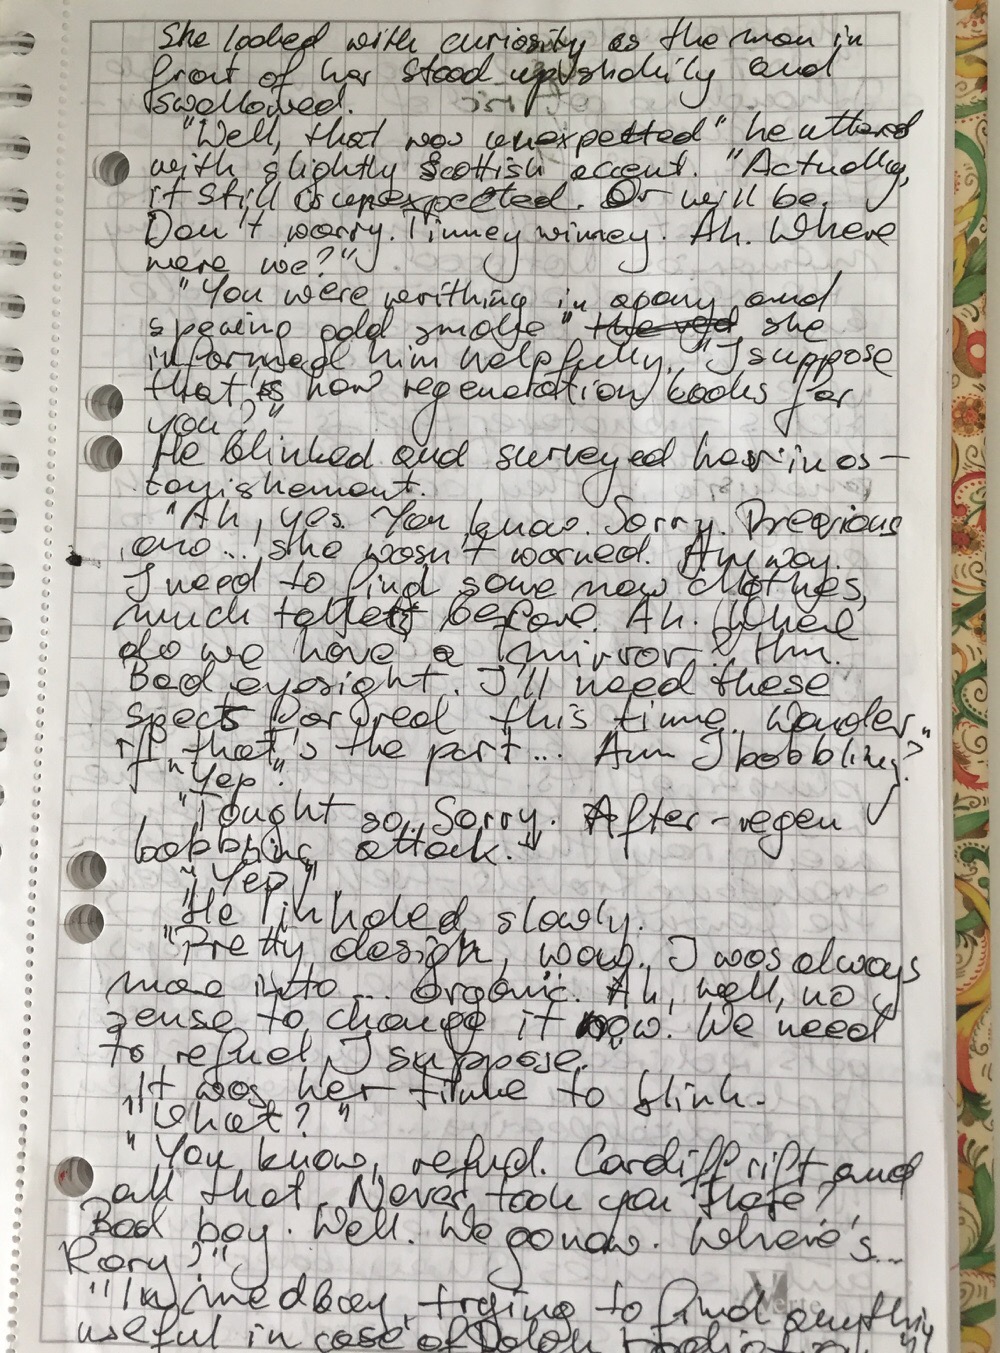 She looked with curiosity as the man in
front of her stood up shakily and
swallowed.
"Well, that was unexpected" he uttered
with slightly Scottish accent. "Actually,
it still is unexpected. Or will be.
Don't worry. Timey wimey. Ah. Where
were we?"
"You were writhing in agony and
spewing gold smoke" she
informed him helpfully. "I suppose
that is how regeneration looks for
you?"
He blinked and surveyed her in as-
tonishement.
"Ah, yes. You know. Sorry. Previous
one... she wasn't warned. Anyway.
I need to find some new clothes,
much before. Ah. Where
do we have a mirror? Hm.
Bad eyesight. I'll need these
specs for real this time. Wonder
if that's the part... Am I babbling?"
"Yep".
"Tought so. Sorry. After-regen
babbling attack."
"Yep"
He inhaled slowly.
"Pretty design, wow. I was always
more into... organic. Ah, well, no
sense to change it now. We need
to refuel, I suppose.
It was her time to blink.
"What?"
"You know, refuel. Cardiff rift and
all that. Never took you there?
Bad boy. Well. We go now. Where's...
Rory?"
"In medbay, trying to find
useful in case of
Verte